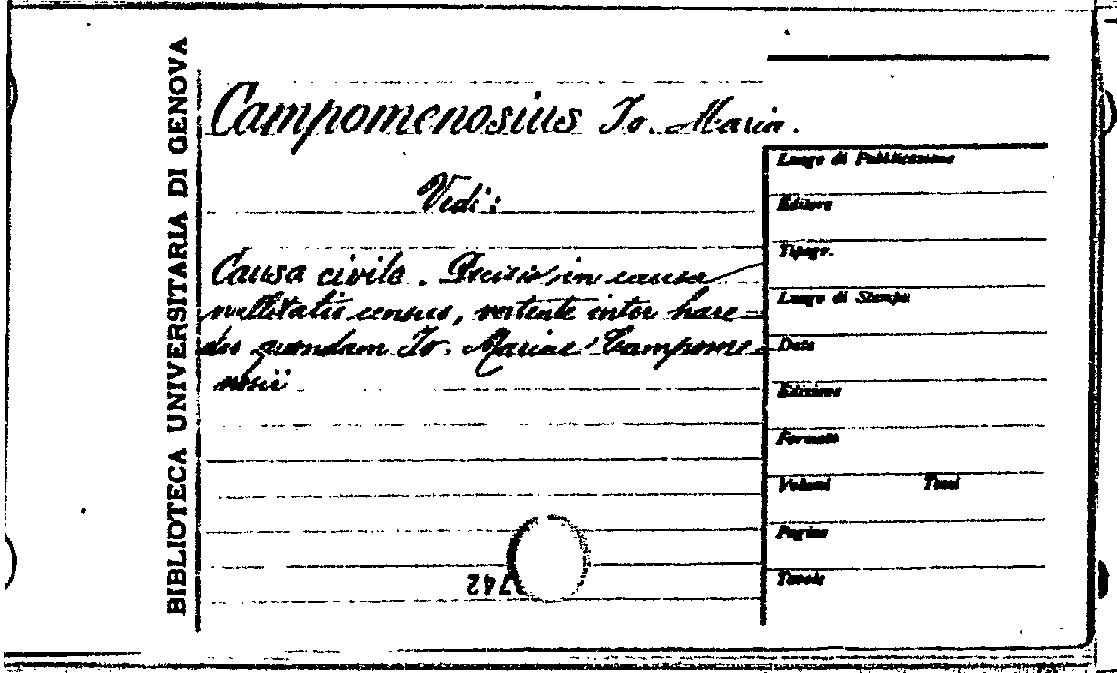 BIBLIOTECA UNIVERSITARIA DI GENOVA
Campomenosius Io. Maria.
Vedi:
Causa civile. Decisio in causa
nullitatis census, vertente inter hære=
des quondam Io. Mariae Campome=
nosii
Luogo di Pubblicazione
Editore
Tipogr.
Luogo di Stampa
Data
Edizione
Formato
Volumi Tomi
Pagine
Tavole
742